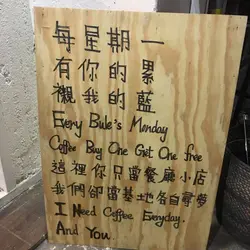 每星期一
有你的累
襯我的藍
Every Bule's Monday
Coffee Buy One Get One free
這裡你只當餐廳小店
我們卻當基地各自尋夢
I Need Coffee Everyday.
And You